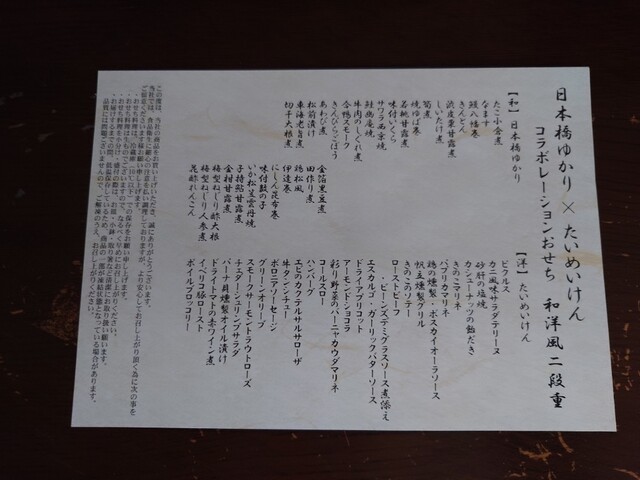 日本橋ゆかり × たいめいけん
コラボレーションおせち 和洋風二段重
【和】日本橋ゆかり
たこ小倉煮
なます
鰻八幡巻
きんとん
渋皮栗甘露煮
しいたけ煮
筍煮
焼ゆば巻
若桃甘露煮
味付いくら
サワラ西京焼
鮭幽庵焼
牛肉のしぐれ煮
合鴨スモーク
きんぴらごぼう
あわび煮
松前漬け
車海老旨煮
切子大根煮
金箔黒豆煮
田作り煮
鶏松風
伊達巻
にしん昆布巻
味付数の子
いか松笠雲丹焼
子持鮎甘露煮
金柑甘露煮
梅型ねじり酢大根
梅型ねじり人参煮
花酢れんこん
【洋】たいめいけん
ピクルス
カニ風味サラダテリーヌ
砂肝の塩焼
カシューナッツの飴だき
きのこマリネ
パプリカマリネ
鶏の燻製・ボスカイオーラソース
帆立燻製グリル
きのこのソテー
ローストビーフ
・ビーンズデミグラスソース煮添え
エスカルゴ・ガーリックバターソース
ドライアプリコット
アーモンドショコラ
彩り野菜のバーニャカウダマリネ
ロールフロマ
ハンバーグ
エビのカクテルサルサローザ
牛タンシチュー
ボロニアソーセージ
グリーンオリーブ
スモークサーモントラウトローズ
スモークシュリンプサラダ
バーナ貝燻製オイル漬け
ドライトマトの赤ワイン煮
イベリコ豚ロースト
ボイルブロッコリー
この度は、当社の商品をお買い上げいただき、誠にありがとうございます。